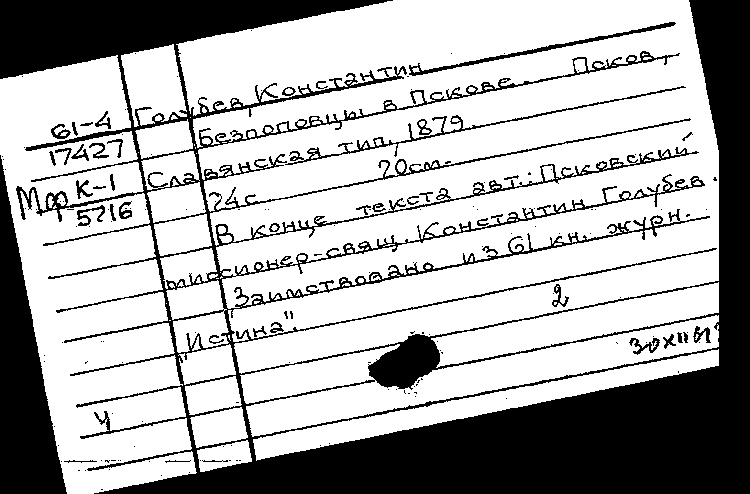 61-4
17427
Мф К-1
5716
Голубев, Константин
Безпоповцы в Пскове. Псков,
Славянская тип., 1879.
24с. 20см.
В конце текста авт.: Псковский
миссионер-свящ. Константин Голубев.
Заимствовано из 61 кн. журн.
"Истина".
2
4